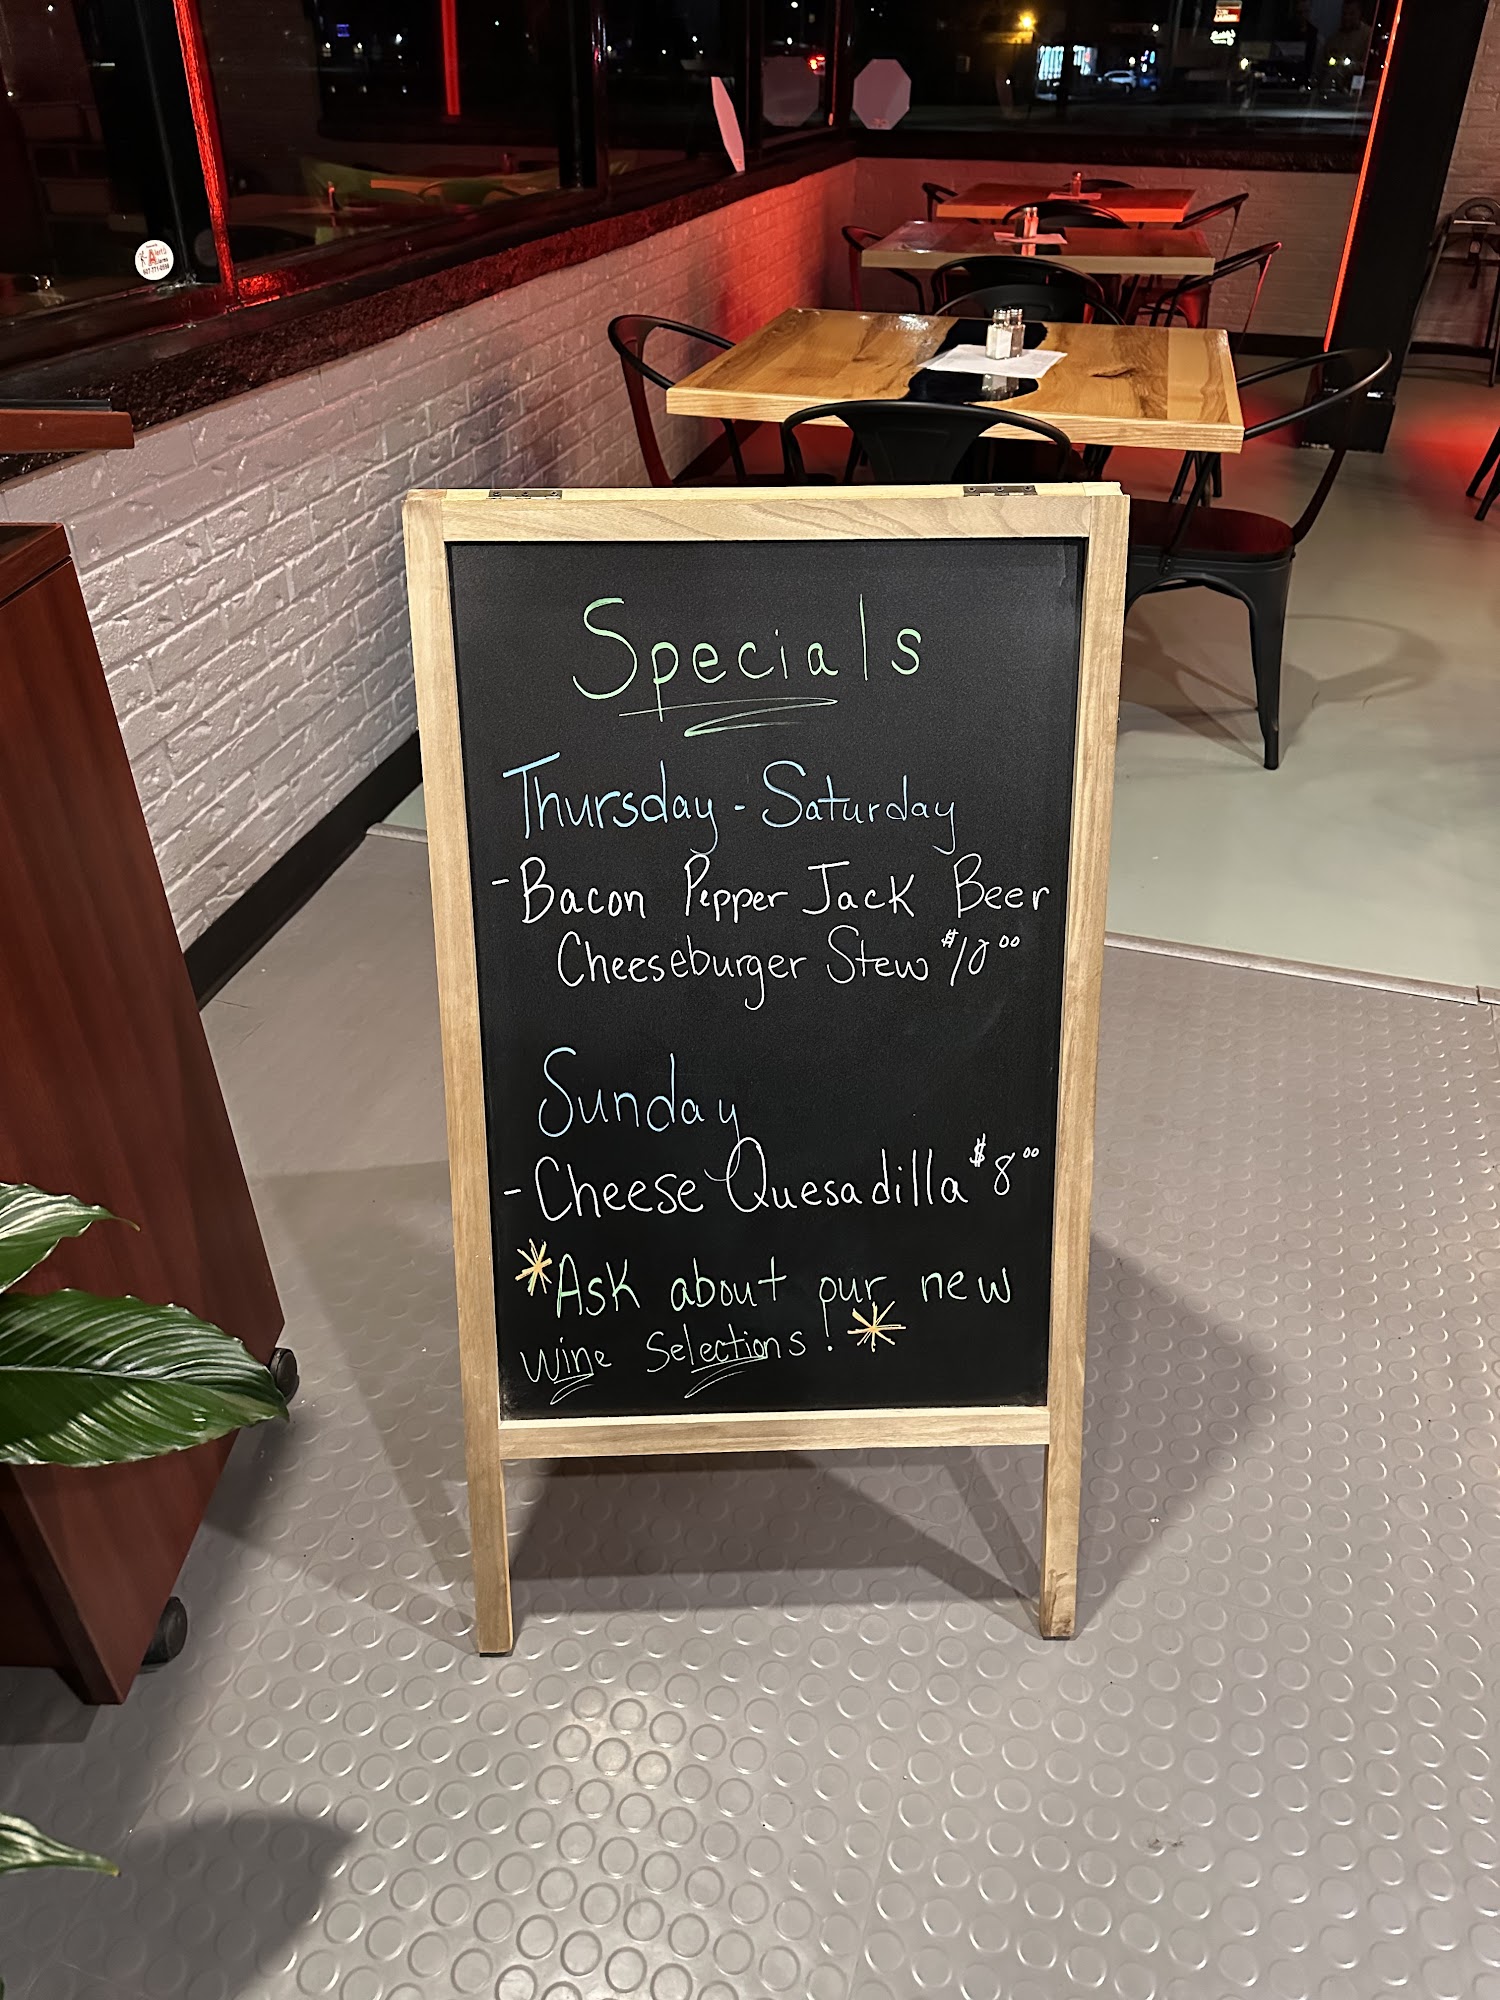 Specials
Thursday - Saturday
- Bacon Pepper Jack Beer
Cheeseburger Stew $10.00
Sunday
- Cheese Quesadilla $8.00
*Ask about our new
wine selections! *